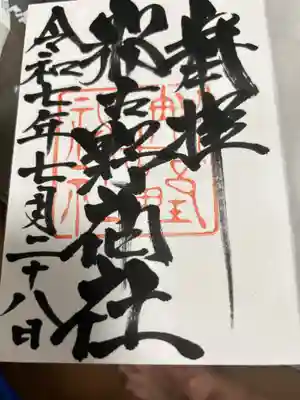 奉拝
那古野神社
令和七年七月二十八日